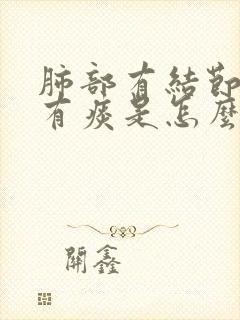 肺部有結節
有痰是怎麼
開鑫